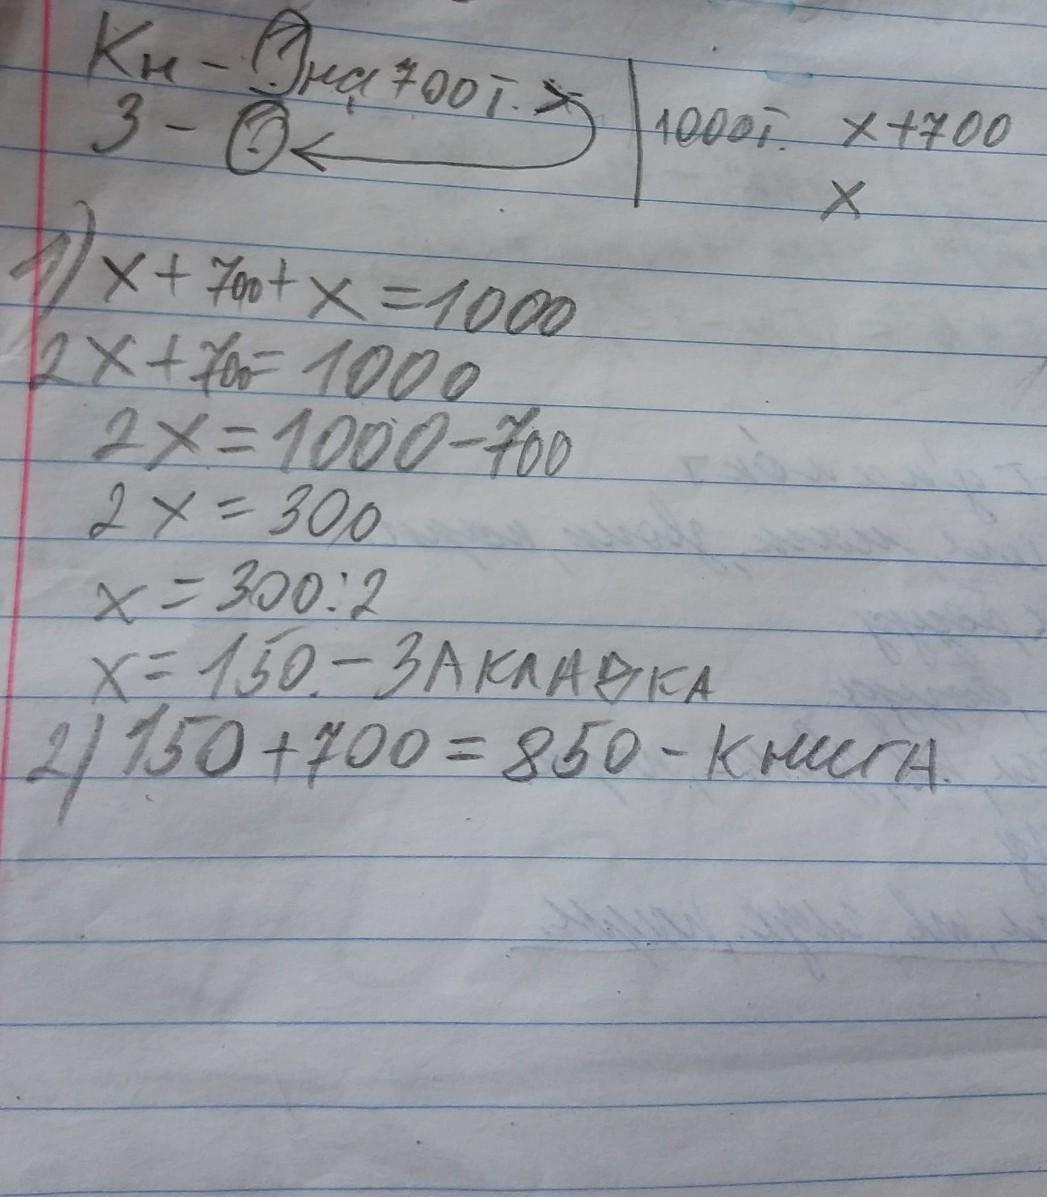 Кн - ? на 700 т. > | 1000 т. x+700
З - ? x
1) x + 700 + x = 1000
2x + 700 = 1000
2x = 1000 - 700
2x = 300
x = 300 : 2
x = 150. - ЗАКЛАВКА
2) 150 + 700 = 850 - КНИГА.